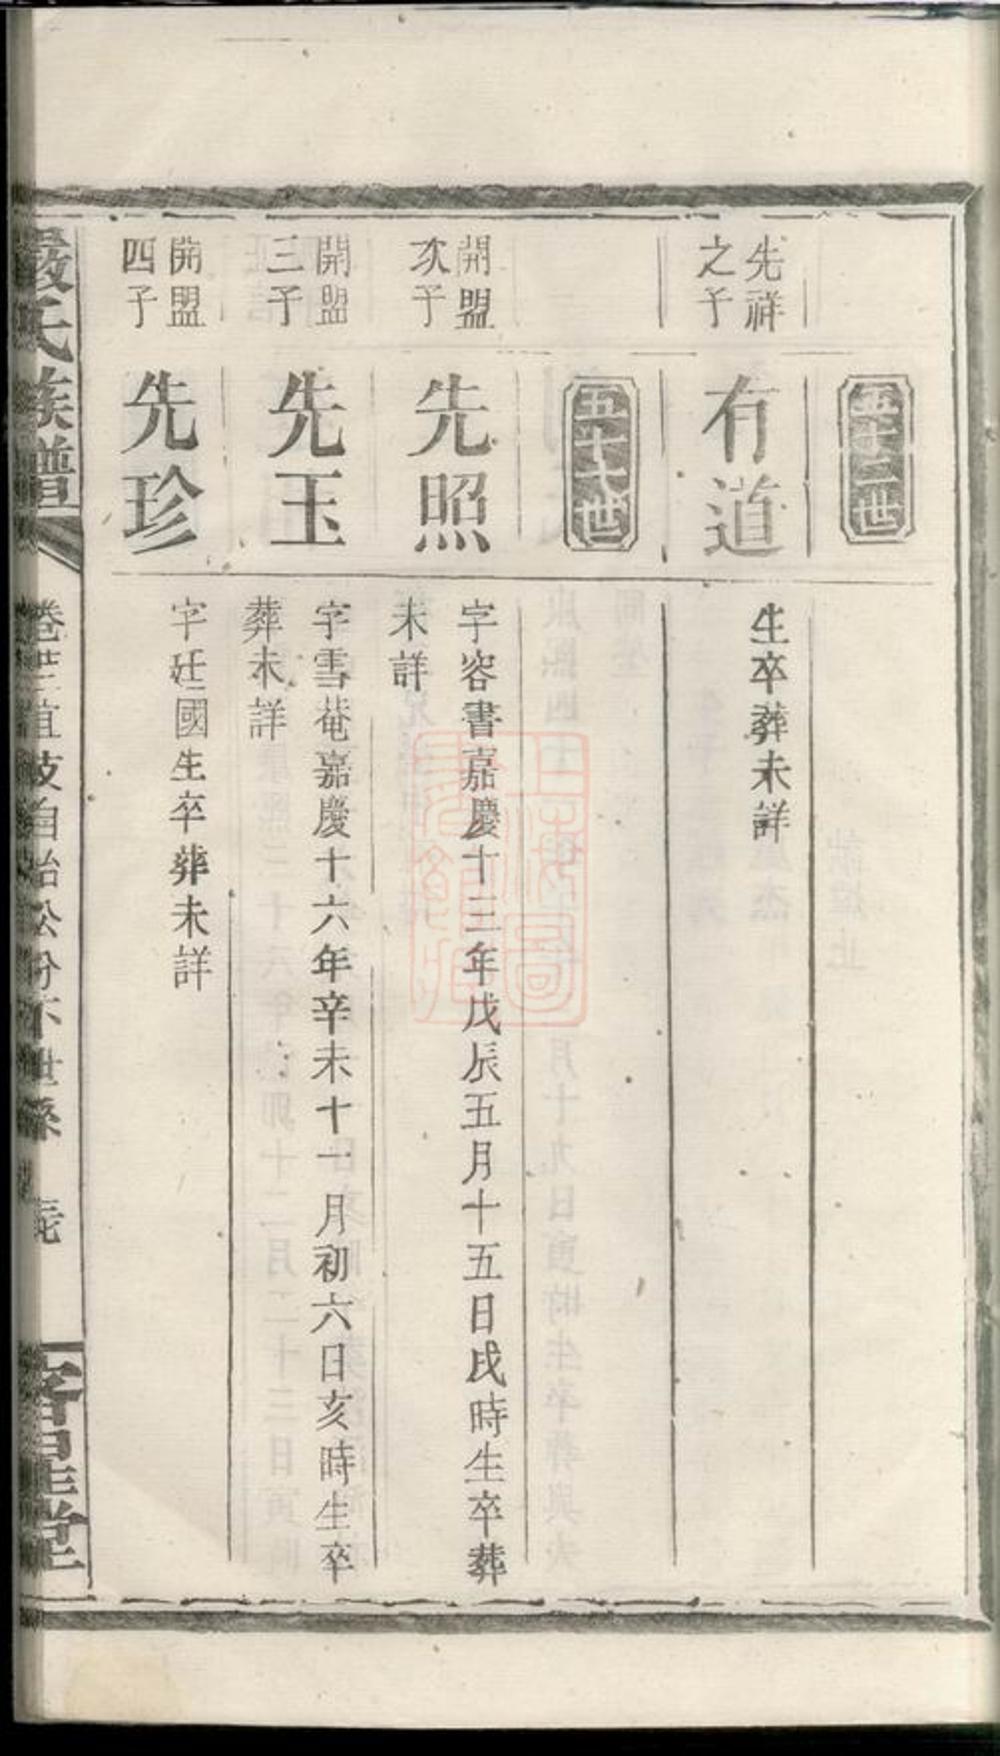 五十二世
先祥
之子
有道
生卒葬未詳
五十六世
開盟
次子
先照
字容書嘉慶十三年戊辰五月十五日戌時生卒葬
未詳
開盟
三子
先玉
字雪菴嘉慶十六年辛未十一月初六日亥時生卒
葬未詳
開盟
四子
先珍
字廷國生卒葬未詳
嚴氏族譜
客星堂